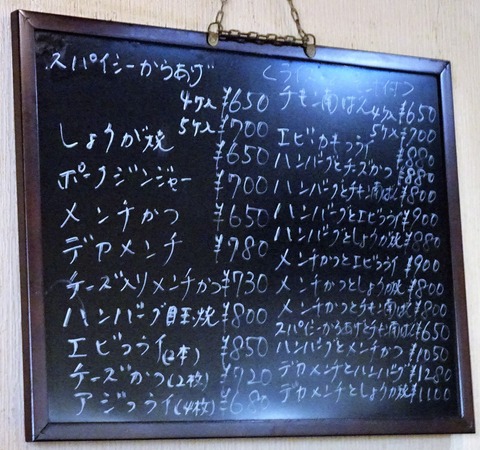 スパイシーからあげ
4ケ入 ¥650
5ケ入 ¥700
しょうが焼 ¥650
ポークジンジャー ¥700
メンチかつ ¥650
デカメンチ ¥780
チーズ入りメンチかつ ¥730
ハンバーグ目玉焼 ¥800
エビフライ(2本) ¥850
チーズかつ(2枚) ¥720
アジフライ(4枚) ¥680
チキン南ばん 4ケ入 ¥650
5ケ入 ¥700
エビカキフライ
ハンバーグとチーズかつ ¥880
ハンバーグとチキン南ばん ¥800
ハンバーグとエビフライ ¥900
ハンバーグとしょうが焼 ¥880
メンチかつとエビフライ ¥900
メンチかつとしょうが焼 ¥800
メンチかつとチキン南ばん ¥800
スパイシーからあげとチキン南ばん ¥650
ハンバーグとメンチかつ ¥1050
デカメンチとハンバーグ ¥1280
デカメンチとしょうが焼 ¥1100